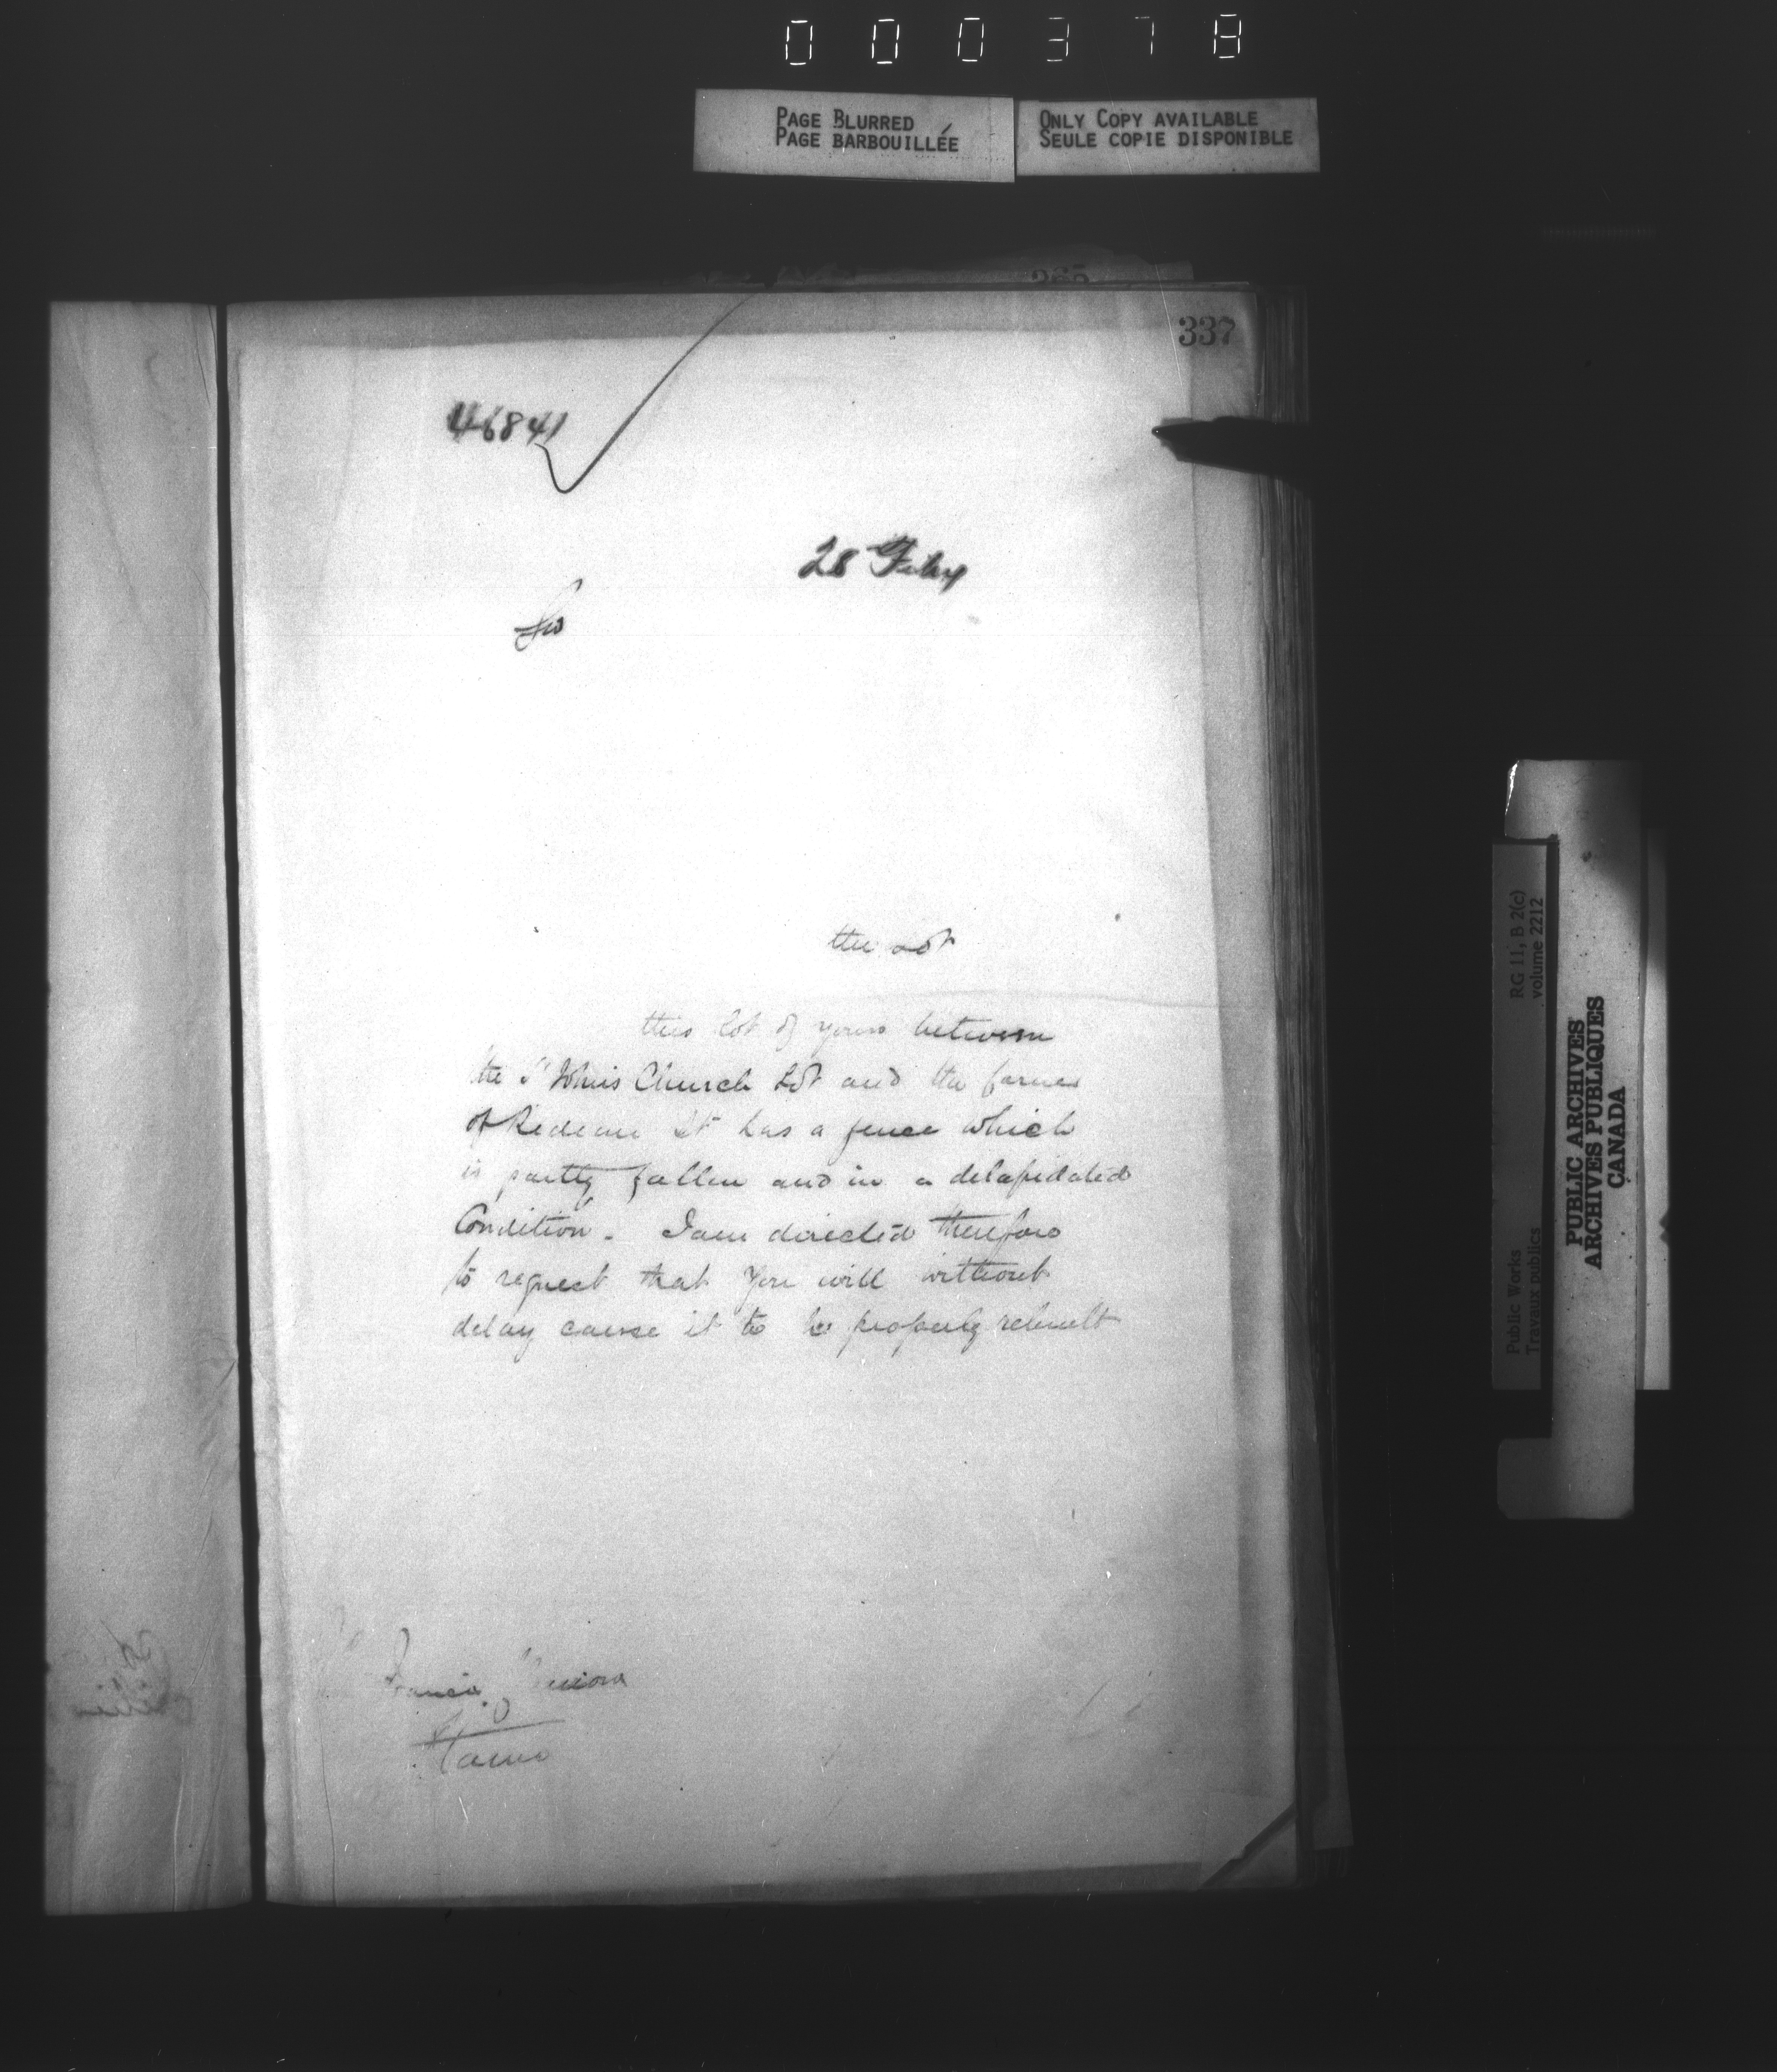 000378
PAGE BLURRED
PAGE BARBOUILLÉE
ONLY COPY AVAILABLE
SEULE COPIE DISPONIBLE
265
337
46841
28 Feby
Sir
the Lot
this lot of yours between
the St Johns Church Lot and the
of Rideau It has a fence which
is partly fallen and in a delapidated
Condition. I am directed therefore
to request that you will without
delay cause it to be properly rebuilt
Francis
RG 11, B 2(c)
volume 2212
Public Works
Travaux publics
PUBLIC ARCHIVES
ARCHIVES PUBLIQUES
CANADA